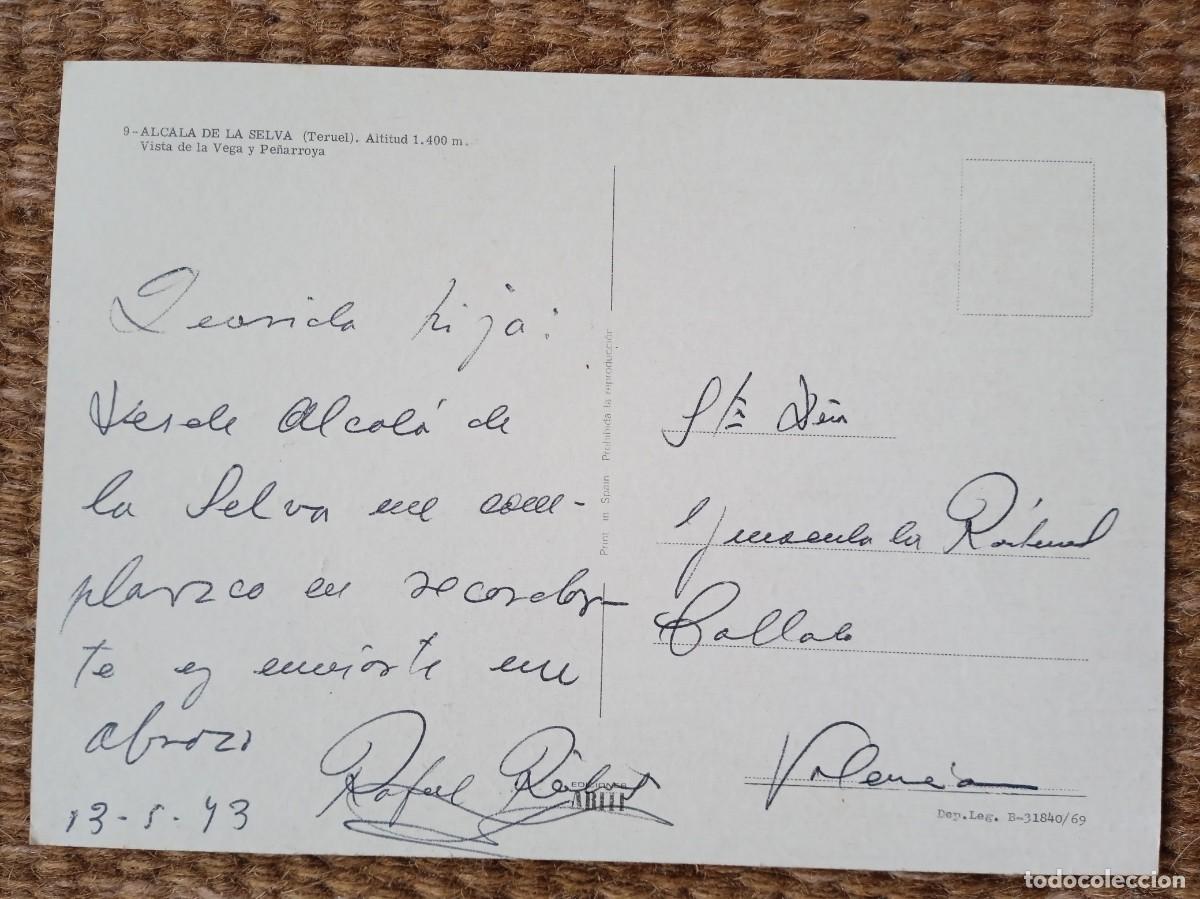 9-ALCALA DE LA SELVA (Teruel). Altitud 1.400 m.
Vista de la Vega y Peñarroya
Querida hija:
Desde Alcalá de
la Selva me com-
plazco en recordar-
te y enviarte un
abrazo
Rafael
13-5-93
Print in Spain Prohibida la reproducción
EDICIONES
ARTE
Srta Dña
Inmaculada
Collado
Valencia
Dep.Leg. B-31840/69
todocoleccion